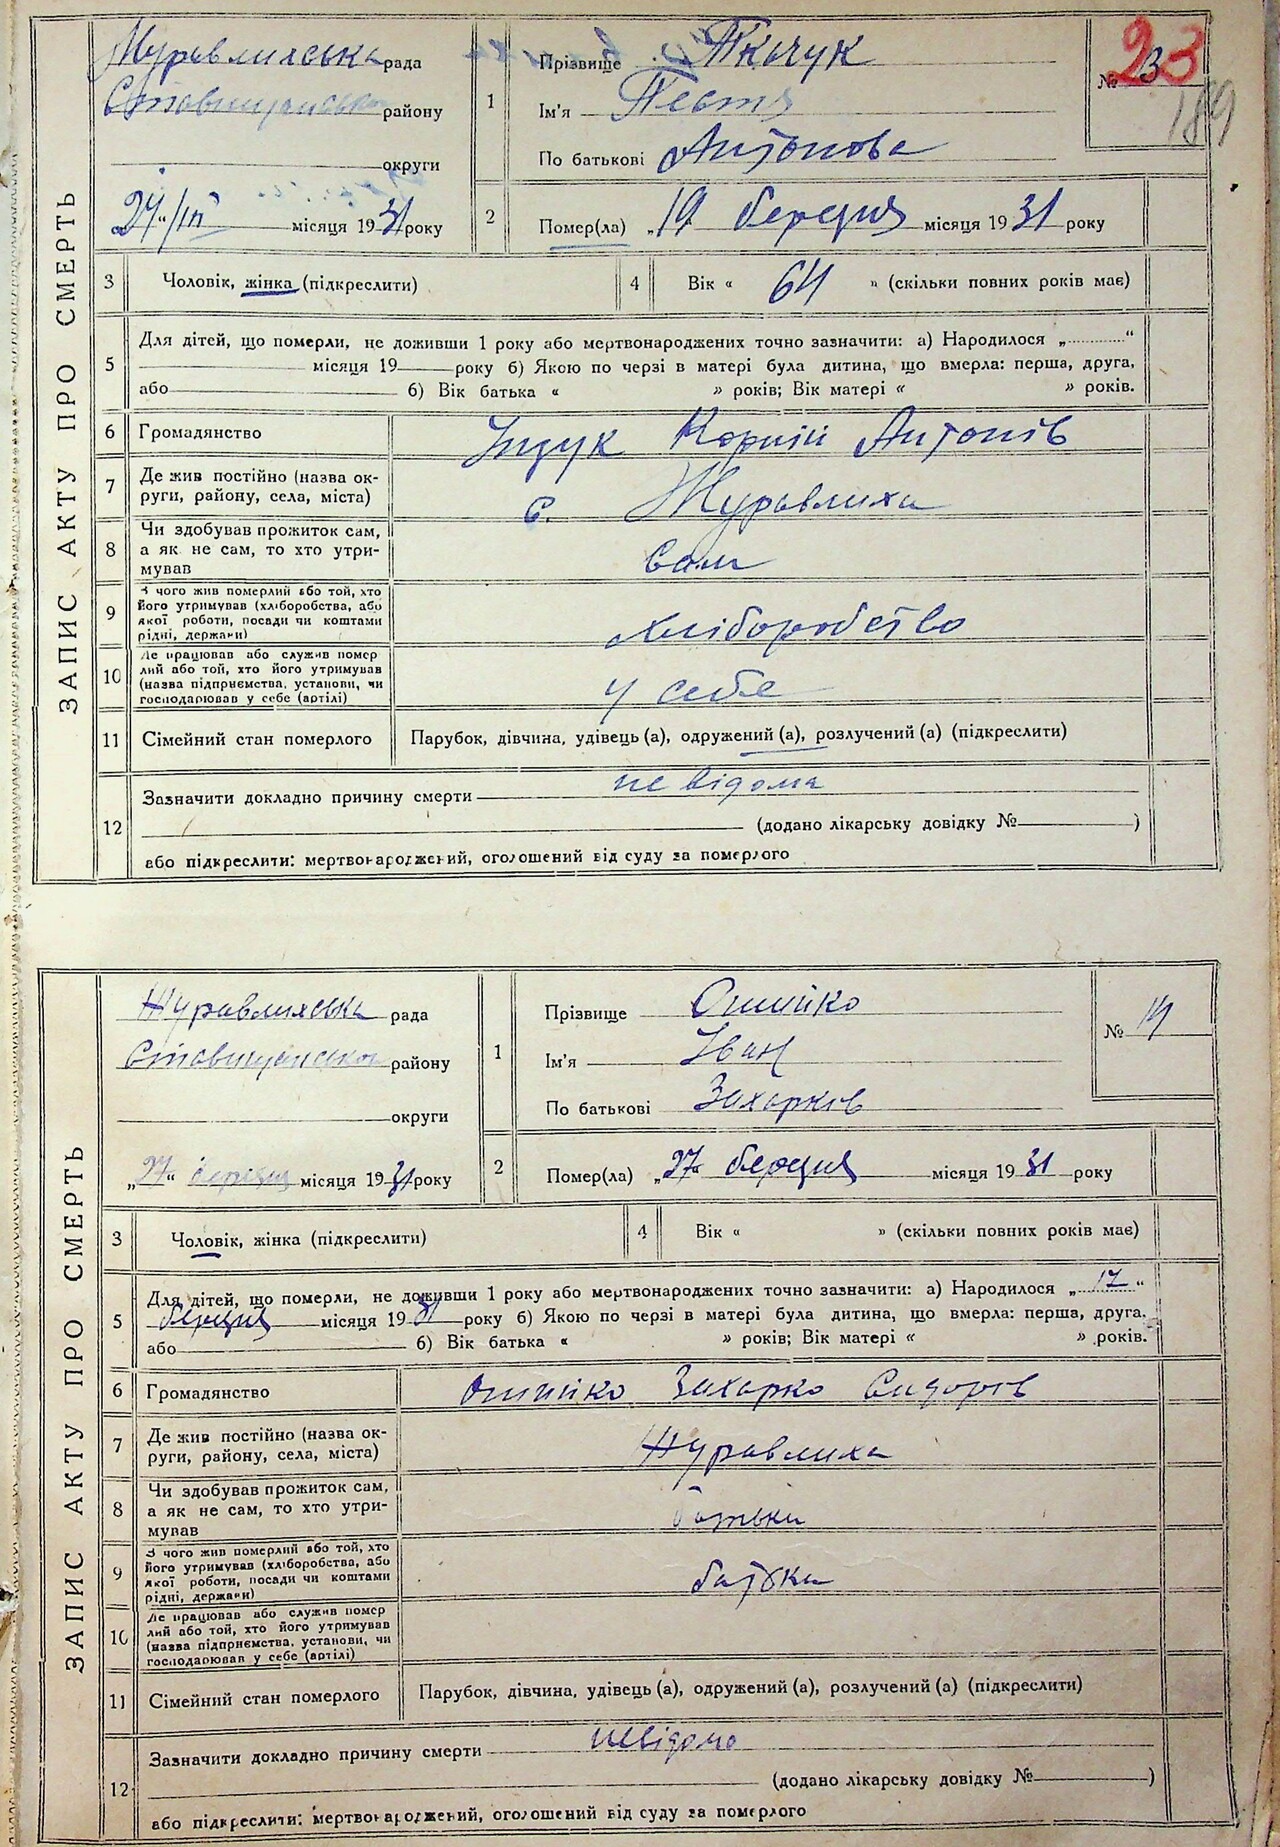 ЗАПИС АКТУ ПРО СМЕРТЬ
Журавлихська рада
Ставищанськ району
округи
24/III місяця 1931 року
1
Прізвище Ткачук
Ім'я
По батькові Антонова
№ 13
23
189
2 Помер(ла) „19" березня місяця 1931 року
3 Чоловік, жінка (підкреслити)
4 Вік « 64 » (скільки повних років має)
5 Для дітей, що померли, не доживши 1 року або мертвонароджених точно зазначити: а) Народилося „............"
місяця 19 року б) Якою по черзі в матері була дитина, що вмерла: перша, друга,
або б) Вік батька « » років; Вік матері « » років.
6 Громадянство Корній Антонів
7 Де жив постійно (назва ок-
руги, району, села, міста) с. Журавлиха
8 Чи здобував прожиток сам,
а як не сам, то хто утри-
мував сам
9 З чого жив померлий або той, хто
його утримував (хліборобства, або
якої роботи, посади чи коштами
рідні, держави) хліборобство
10 Де працював або служив помер
лий або той, хто його утримував
(назва підприємства, установи, чи
господарював у себе (артілі) у себе
11 Сімейний стан померлого Парубок, дівчина, удівець (а), одружений (а), розлучений (а) (підкреслити)
12 Зазначити докладно причину смерти не відома
(додано лікарську довідку № )
або підкреслити: мертвонароджений, оголошений від суду за померлого
ЗАПИС АКТУ ПРО СМЕРТЬ
Журавлихська рада
Ставищанськ району
округи
„27" березня місяця 1931 року
1
Прізвище
Ім'я Іван
По батькові Захарків
№ 14
2 Помер(ла) „27" березня місяця 1931 року
3 Чоловік, жінка (підкреслити)
4 Вік « » (скільки повних років має)
5 Для дітей, що померли, не доживши 1 року або мертвонароджених точно зазначити: а) Народилося „17"
березня місяця 1931 року б) Якою по черзі в матері була дитина, що вмерла: перша, друга,
або б) Вік батька « » років; Вік матері « » років.
6 Громадянство Захарко Сидорів
7 Де жив постійно (назва ок-
руги, району, села, міста) Журавлиха
8 Чи здобував прожиток сам,
а як не сам, то хто утри-
мував батьки
9 З чого жив померлий або той, хто
його утримував (хліборобства, або
якої роботи, посади чи коштами
рідні, держави) батьки
10 Де працював або служив помер
лий або той, хто його утримував
(назва підприємства, установи, чи
господарював у себе (артілі)
11 Сімейний стан померлого Парубок, дівчина, удівець (а), одружений (а), розлучений (а) (підкреслити)
12 Зазначити докладно причину смерти невідомо
(додано лікарську довідку № )
або підкреслити: мертвонароджений, оголошений від суду за померлого